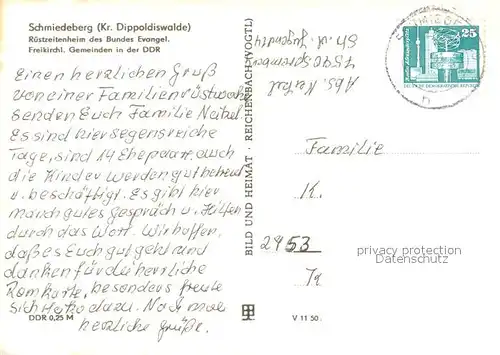 Schmiedeberg (Kr. Dippoldiswalde)
Rüstzeitenheim des Bundes Evangel.
Freikirchl. Gemeinden in der DDR
Einen herzlichen Gruß
von einer Familienrüstwoche
senden Euch Familie
Es sind hier segensreiche
Tage, sind 14 Ehepaare. auch
die Kinder werden gut betreut
u. beschäftigt. Es gibt hier
manch gutes Gespräch u. Hilfen
durch das Wort. Wir hoffen,
daß es Euch gut geht und
danken für die herrliche
Romkarte, besonders freute
sich dazu. Noch mal
herzliche Grüße.
DDR 0,25 M
BILD UND HEIMAT · REICHENBACH (VOGTL)
V 11 50
Abs.
Familie
K.
2953
K
25
privacy protection
Datenschutz